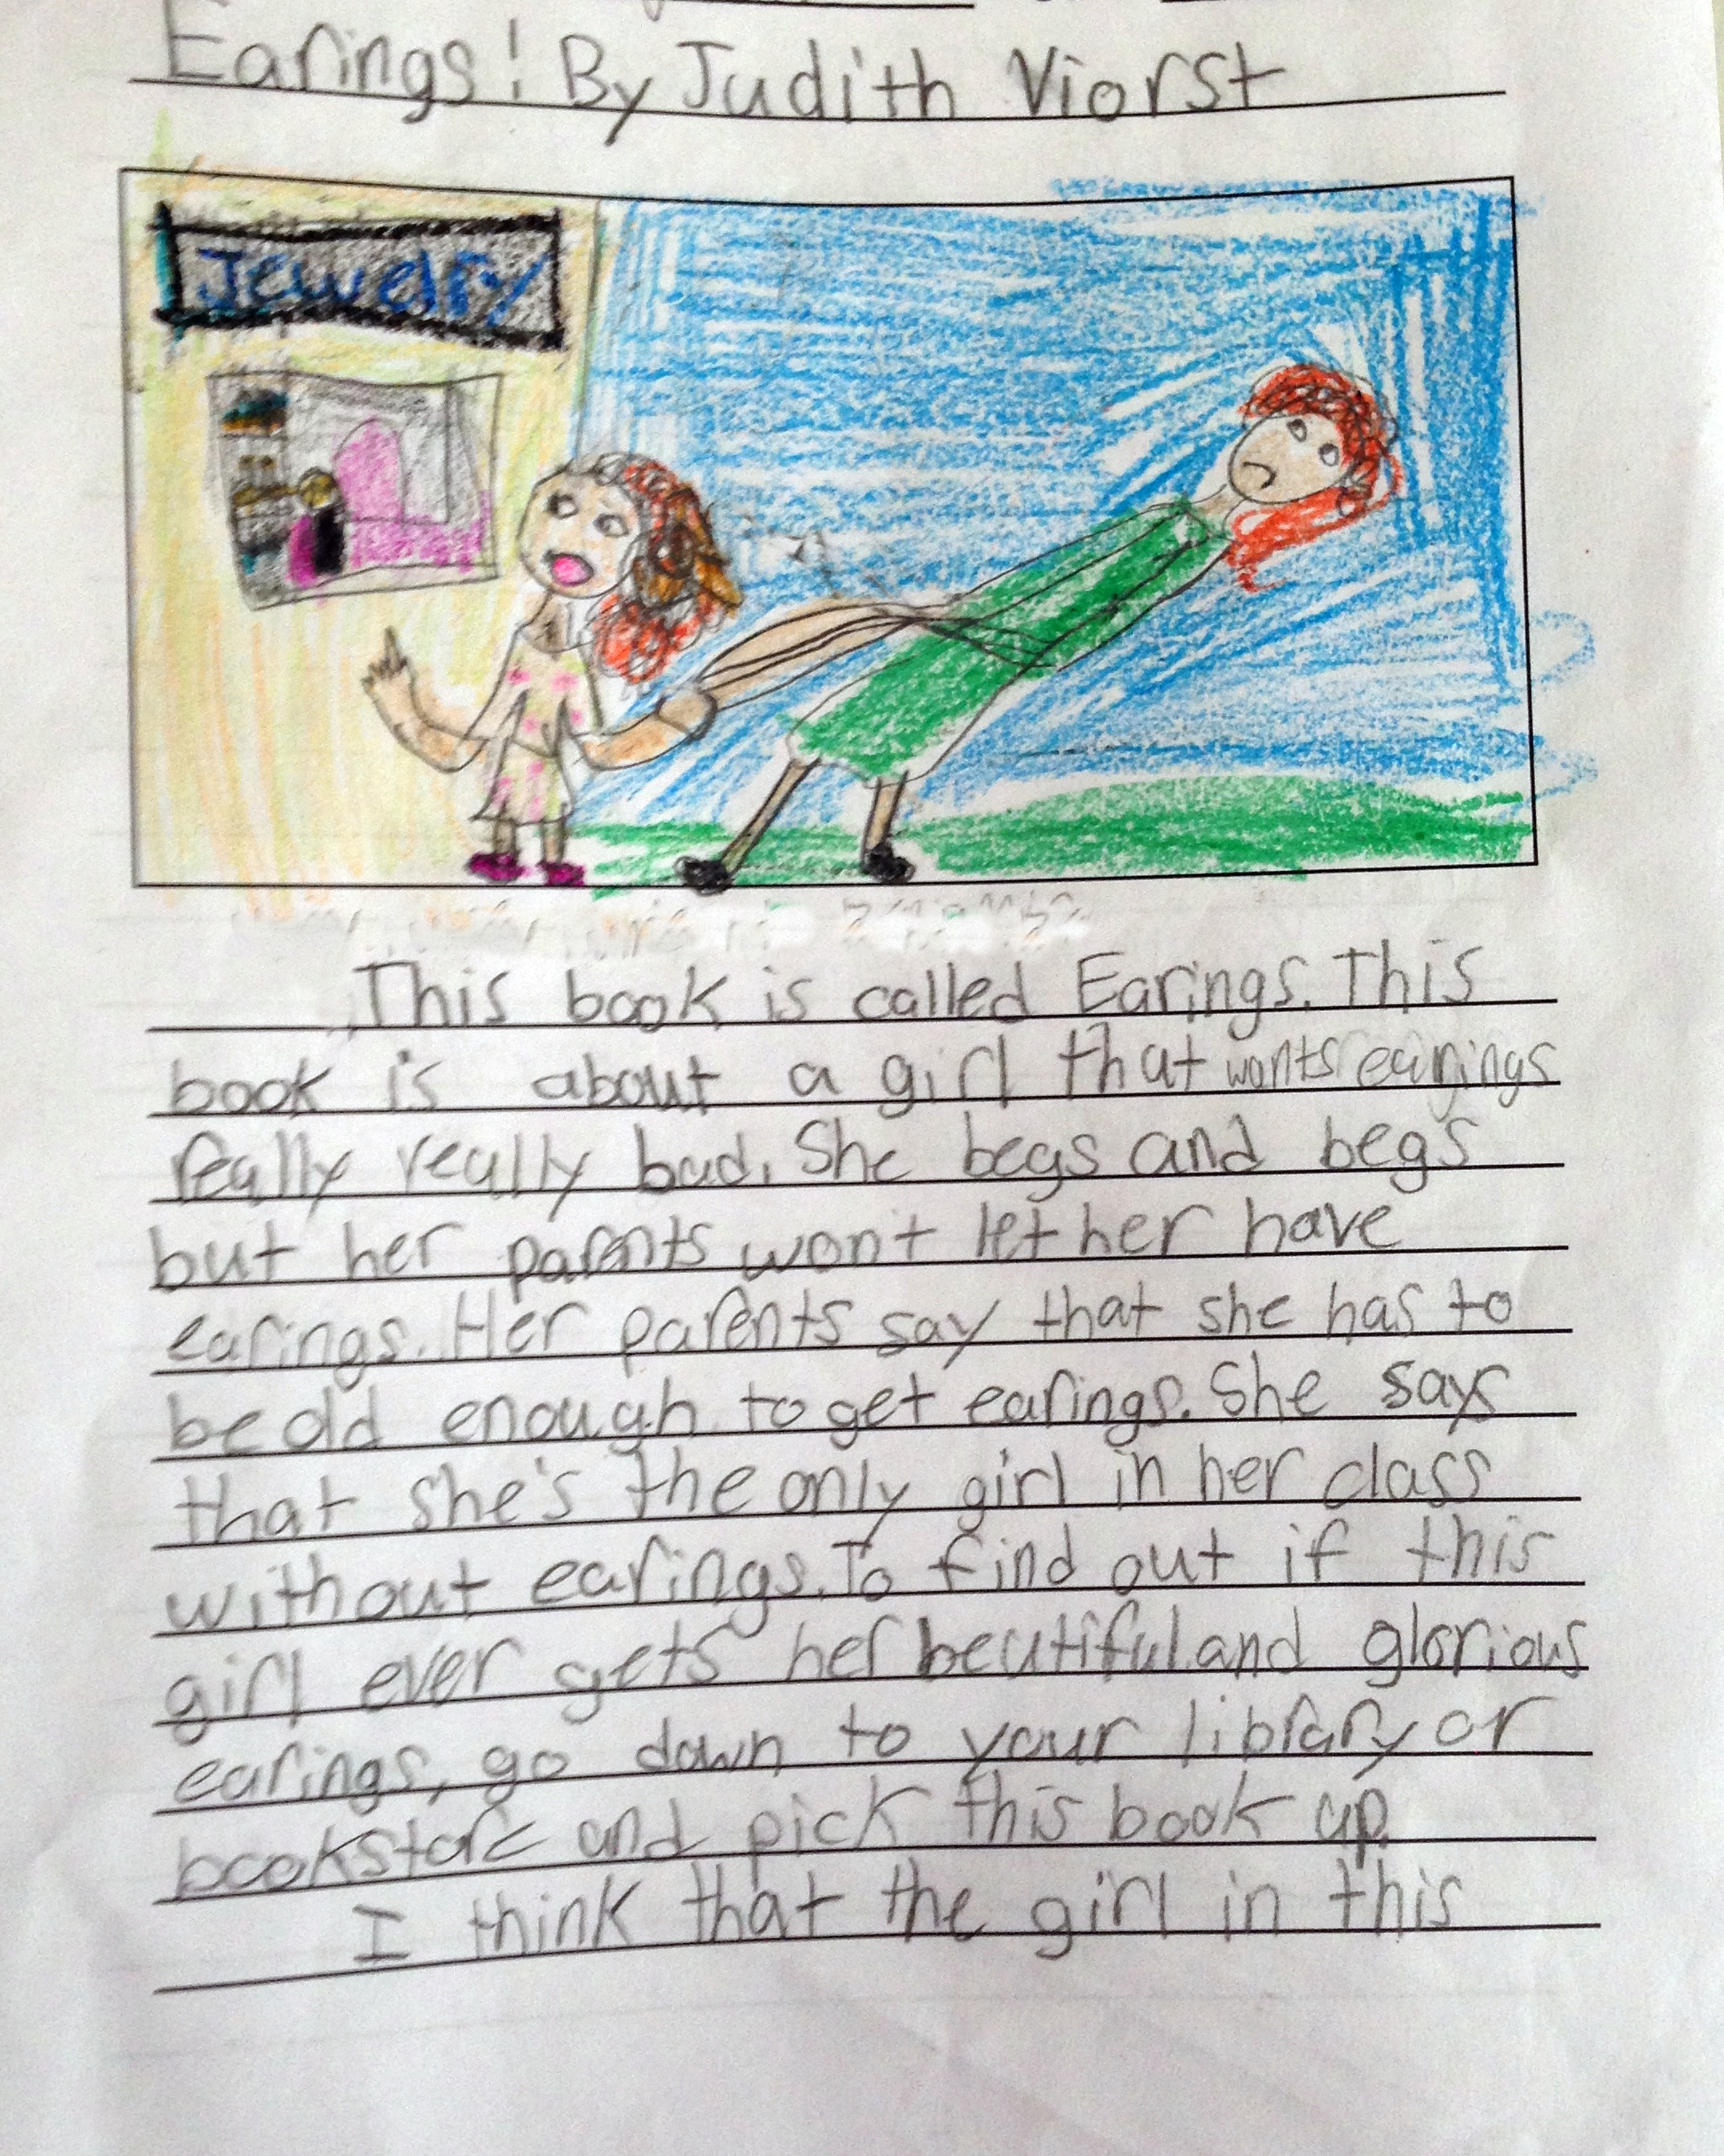 Earings! By Judith Viorst
Jewelry
This book is called Earings. This
book is about a girl that wants earings
really really bad. She begs and begs
but her parents won't let her have
earings. Her parents say that she has to
be old enough to get earings. She says
that she's the only girl in her class
without earings. To find out if this
girl ever gets her beutiful and glorious
earings, go down to your library or
bookstore and pick this book up.
I think that the girl in this